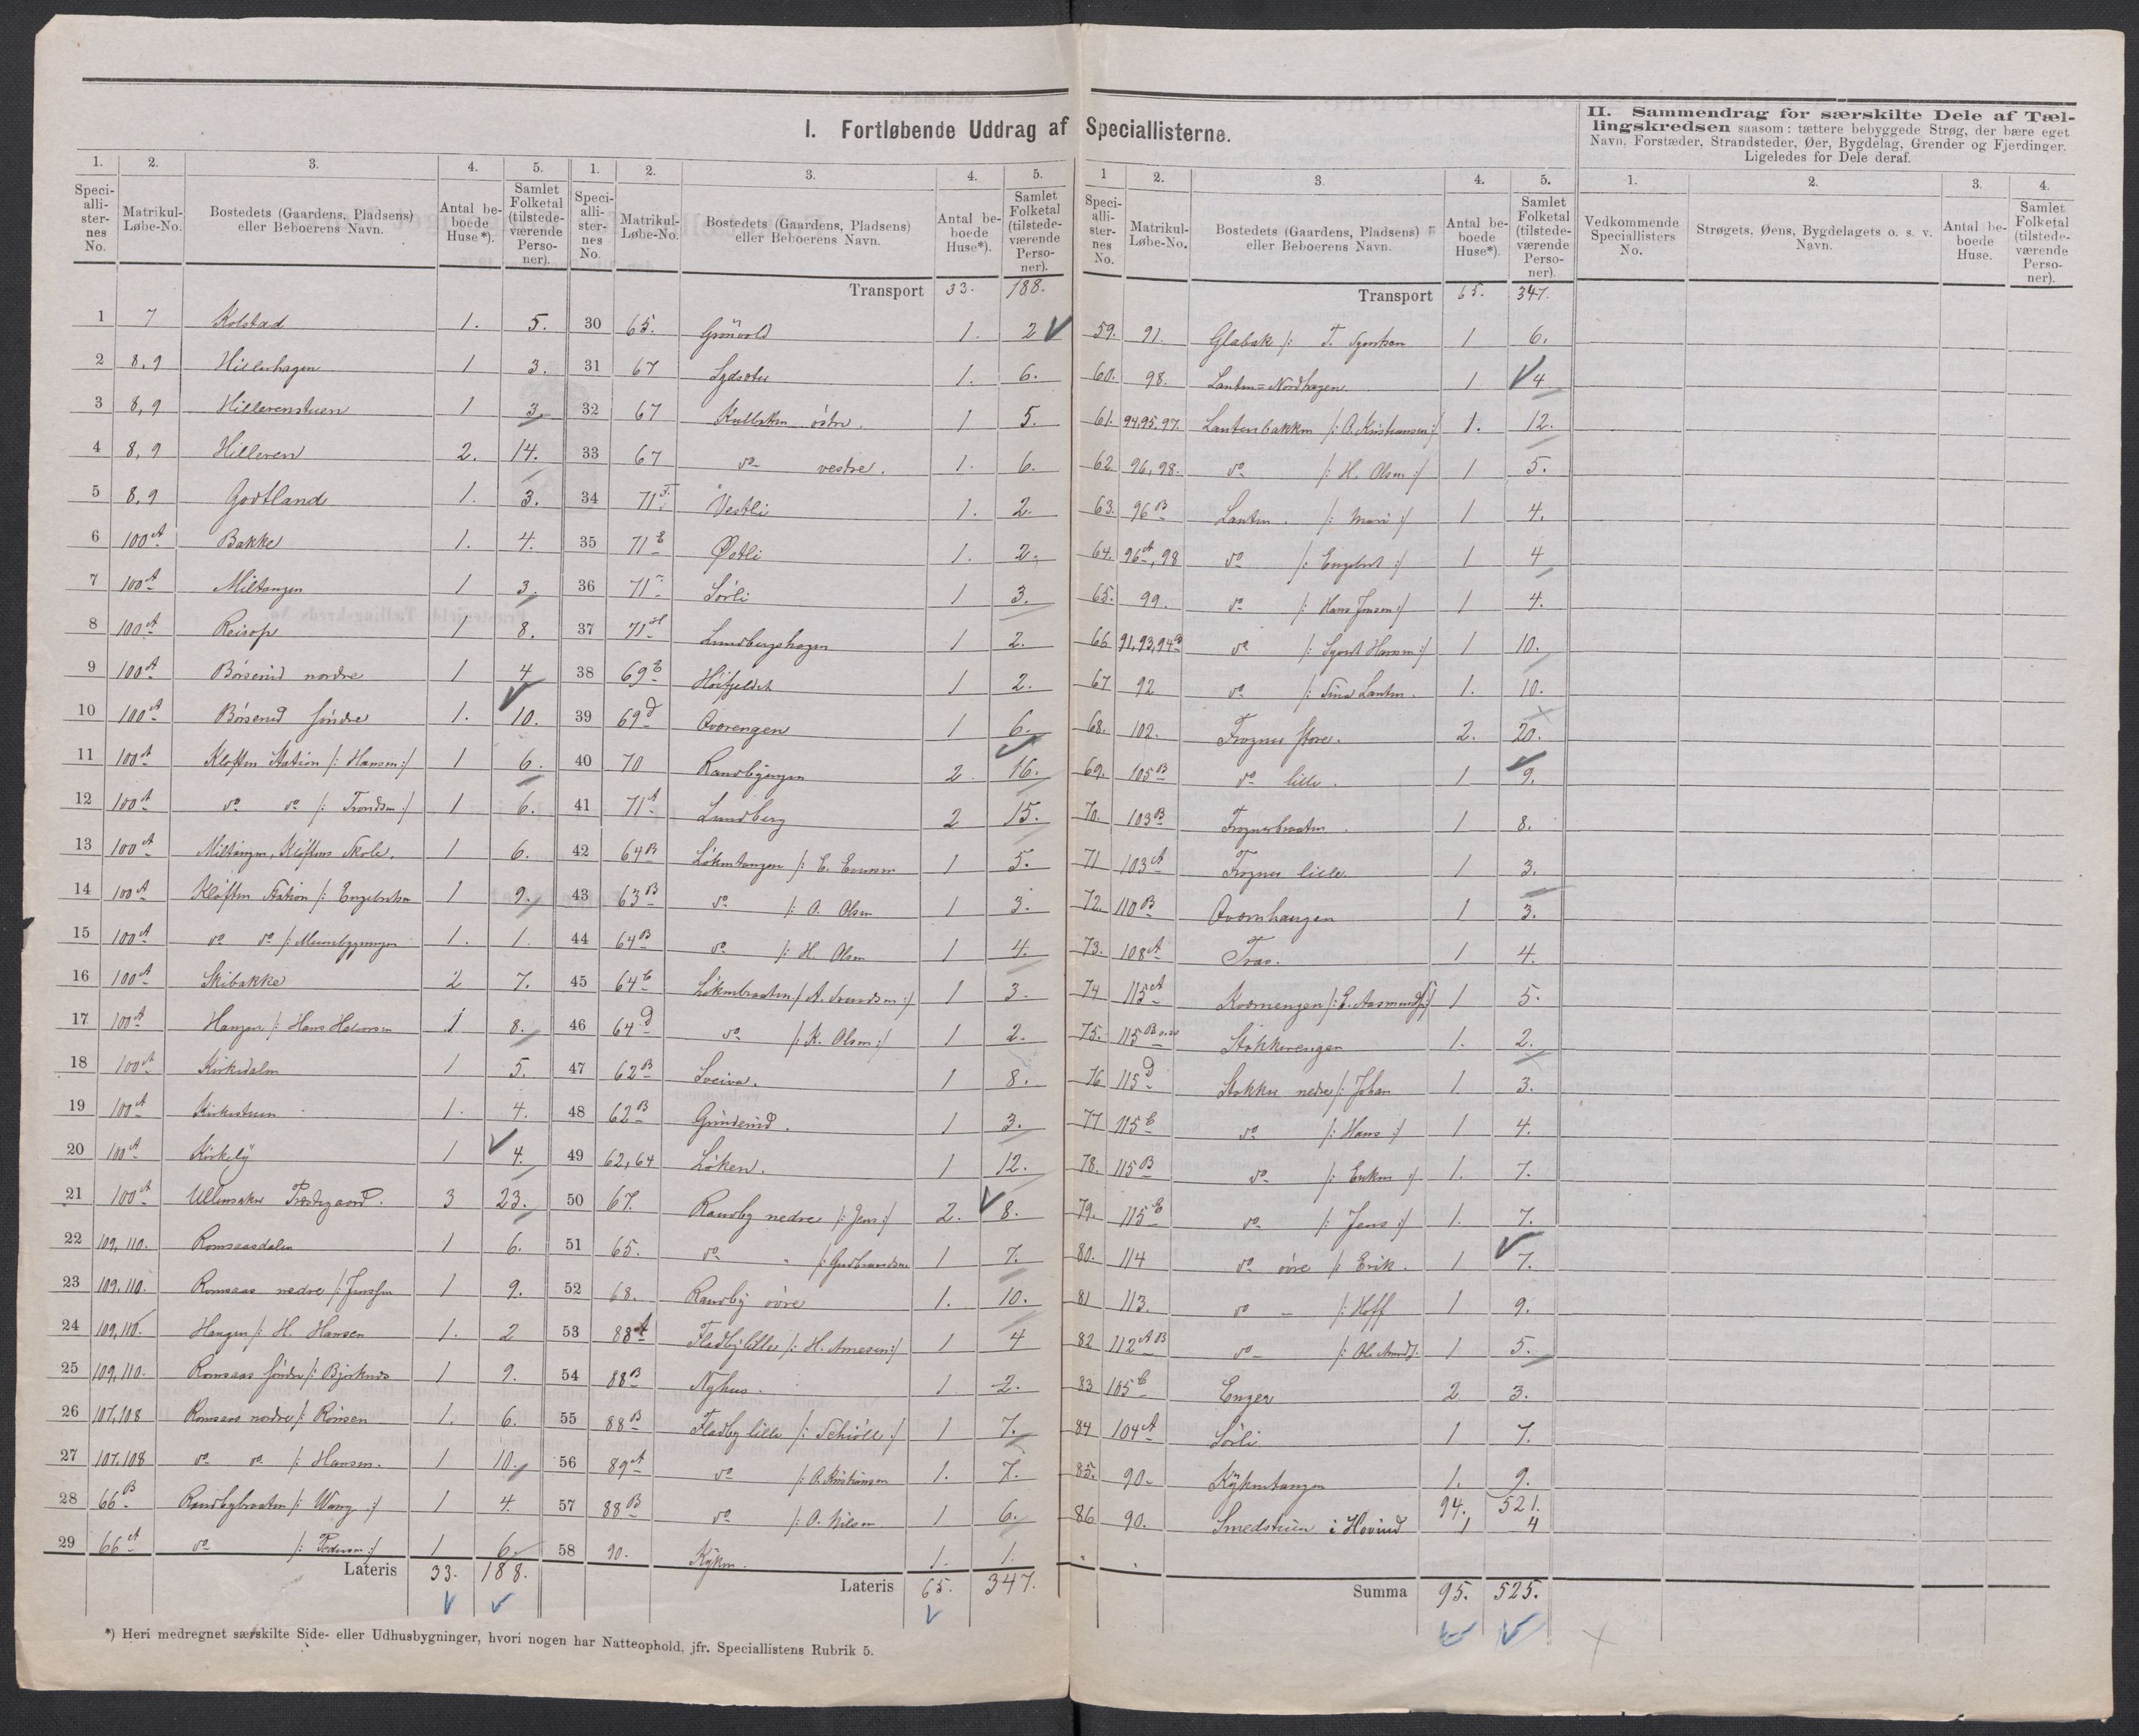 I. Fortløbende Uddrag af Speciallisterne.
II. Sammendrag for særskilte Dele af Tæl-
lingskredsen saasom: tættere bebyggede Strøg, der bære eget
Navn, Forstæder, Strandsteder, Øer, Bygdelag, Grender og Fjerdinger.
Ligeledes for Dele deraf.
1. 2. 3. 4. 5.
Speci-
alli-
ster-
nes
No.
Matrikul-
Løbe-No.
Bostedets (Gaardens, Pladsens)
eller Beboerens Navn.
Antal be-
boede
Huse*).
Samlet
Folketal
(tilstede-
værende
Perso-
ner).
1 7 Kolstad 1. 5.
2 8,9 Hillerhagen 1 3.
3 8,9 Hillerenstuen 1 3.
4 8,9 Hilleren 2. 14.
5 8,9 Godtland 1. 3.
6 100A Bakke 1. 4.
7 100A Miltangen 1 3.
8 100A Reisop 1 8.
9 100A Börserud nordre 1 4
10 100A Börserud söndre 1. 10.
11 100A Kloften Station /: Hansen :/ 1 6.
12 100A do do /: Trondsen :/ 1 6.
13 100A Miltangen, Klöftens Skole. 1 6.
14 100A Klöften Station /: Engebretsen 1 9.
15 100A do do /: Meieribygningen 1. 1.
16 100A Skibakke 2 7.
17 100A Haugen /: Hans Halvorsen 1 8.
18 100A Kirkedalen 1 5.
19 100A Kirkestuen 1. 4.
20 100A Kirkeby 1 4.
21 100A Ullensaker Præstegaard. 3 23.
22 109, 110. Romsaasdalen 1 6.
23 109, 110. Romsaas nedre /: Jensen 1 9.
24 109, 110. Haugen /: H. Hansen 1. 2
25 109, 110. Romsaas söndre /: Bjerknes 1 9.
26 107, 108 Romsaas nordre /: Rönsen 1. 6.
27 107, 108 do do /: Hansen. 1 10.
28 66B Randbybraaten /: Wang :/ 1 4.
29 66A do /: Pedersen :/ 1 6.
Lateris 33. 188.
*) Heri medregnet særskilte Side- eller Udhusbygninger, hvori nogen har Natteophold, jfr. Speciallistens Rubrik 5.
1. 2. 3. 4. 5.
Speci-
alli-
ster-
nes
No.
Matrikul-
Løbe-No.
Bostedets (Gaardens, Pladsens)
eller Beboerens Navn.
Antal be-
boede
Huse*).
Samlet
Folketal
(tilstede-
værende
Perso-
ner).
Transport 33. 188.
30 65. Grönvold 1. 2
31 67 1. 6.
32 67 Kulbakken östre. 1 5.
33 67 do vestre. 1. 6.
34 71F Vestli 1. 2.
35 71E Østli 1. 2.
36 71 Sörli 1 3.
37 71H Lundbergshagen 1 2.
38 69C Höifjeldet 1 2.
39 69D Qværengen 1 6.
40 70 2 16.
41 71A Lundberg 2 15.
42 64B Lökentangen /: E. Evensen 1 5.
43 63B do /: O. Olsen 1 3.
44 64B do /: H. Olsen 1 4.
45 64C Lökenbraaten /: A. Trondsen :/ 1 3.
46 64D do /: K. Olsen :/ 1 2.
47 62B Sveiva. 1 8.
48 62B Grinderud. 1 3.
49 62, 64 Löken. 1 12.
50 67. Randby nedre /: Jens :/ 2. 8.
51 65. do " /: Gudbrandsen 1 7.
52 68. Randby övre 1. 10.
53 88A Fladby lille /: H. Arnesen :/ 1 4
54 88B Nyhus. 1 2.
55 88B Fladby lille /: Schiölle :/ 1 7.
56 89A do /: O. Kristiansen 1. 7.
57 88B do /: O. Nilsen 1 6.
58 90. Kyken. 1. 1.
Lateris 65. 347.
1 2. 3. 4. 5.
Speci-
alli-
ster-
nes
No.
Matrikul-
Løbe-No.
Bostedets (Gaardens, Pladsens)
eller Beboerens Navn.
Antal be-
boede
Huse*).
Samlet
Folketal
(tilstede-
værende
Perso-
ner).
Transport 65. 347.
59. 91. Glabak /: T. Syvertsen 1 6.
60. 98. Lanten=Nordhagen. 1 4
61. 94,95,97. Lantenbakken /: O. Kristiansen :/ 1. 12.
62 96,98. do /: H. Olsen :/ 1 5.
63. 96B Lanten. /: Mari :/ 1 4.
64. 96A, 98 do /: Engebret :/ 1 4
65. 99. do /: Hans Jensen :/ 1 4.
66 91,93,94 do /: Syvert Hansen :/ 1 10.
67 92 do /: Tina Lanten. 1. 10.
68. 102. Frogner store. 2. 20.
69. 105B do lille. 1 9.
70. 103B Frognerbraaten. 1 8.
71 103A Frogner lille. 1 3.
72. 110B Qværnhaugen 1 3.
73. 108A 1 4.
74 115A Kværnengen /: E. Aasmunds :/ 1 5.
75. 115B Stokkerengen 1. 2.
76 115D Stokker nedre /: Johan 1. 3.
77 115C do /: Hans :/ 1 4.
78. 115B do /: Eriksen :/ 1. 7.
79. 115E do /: Jens :/ 1. 7.
80. 114 do övre /: Erik. 1 7.
81 113. do – /: Hoff 1 9.
82 112AB do – 1 5.
83 105C Enger 2 3.
84 104A Sörli 1 7.
85. 90. Kykentangen 1. 9.
94. 521.
86 90. Smedstuen i Hovind 1 4
Summa 95. 525.
1. 2. 3. 4.
Vedkommende
Speciallisters
No.
Strøgets, Øens, Bygdelagets o. s. v.
Navn.
Antal be-
boede
Huse.
Samlet
Folketal
(tilstede-
værende
Perso-
ner).